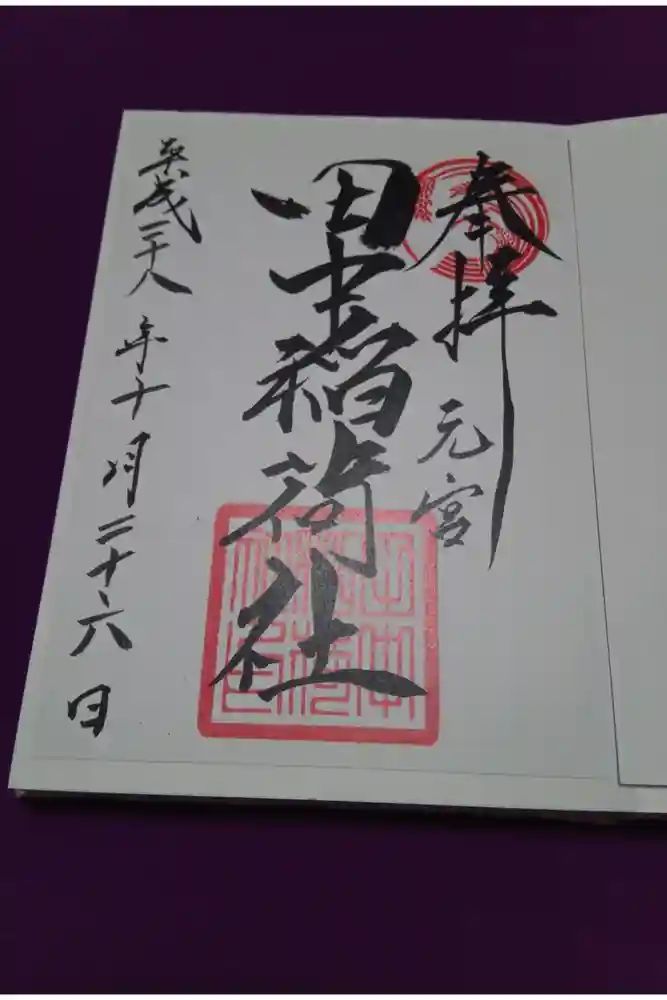 奉拝
元宮
田中稲荷社
平成二十八年十月二十六日